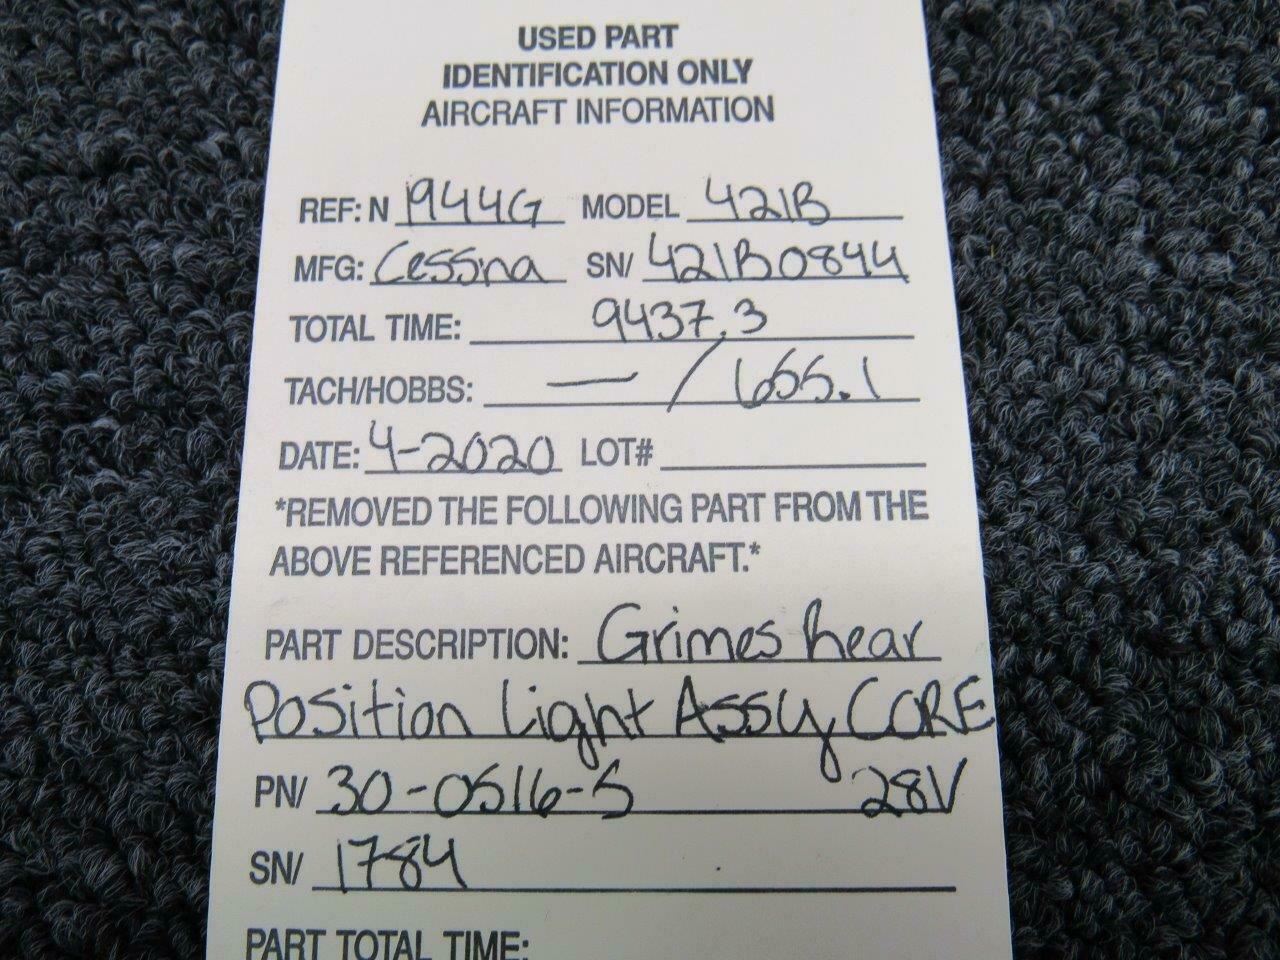 USED PART
IDENTIFICATION ONLY
AIRCRAFT INFORMATION
REF: N 1944G MODEL 421B
MFG: Cessna SN/ 421B0844
TOTAL TIME: 9437.3
TACH/HOBBS: — / 655.1
DATE: 4-2020 LOT#
*REMOVED THE FOLLOWING PART FROM THE
ABOVE REFERENCED AIRCRAFT.*
PART DESCRIPTION: Grimes Rear
Position Light Assy, CORE
PN/ 30-0516-5 28V
SN/ 1784
PART TOTAL TIME: